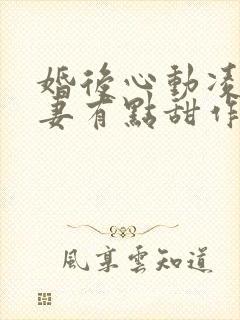 婚後心動凌
妻有點甜作
風享雲知道